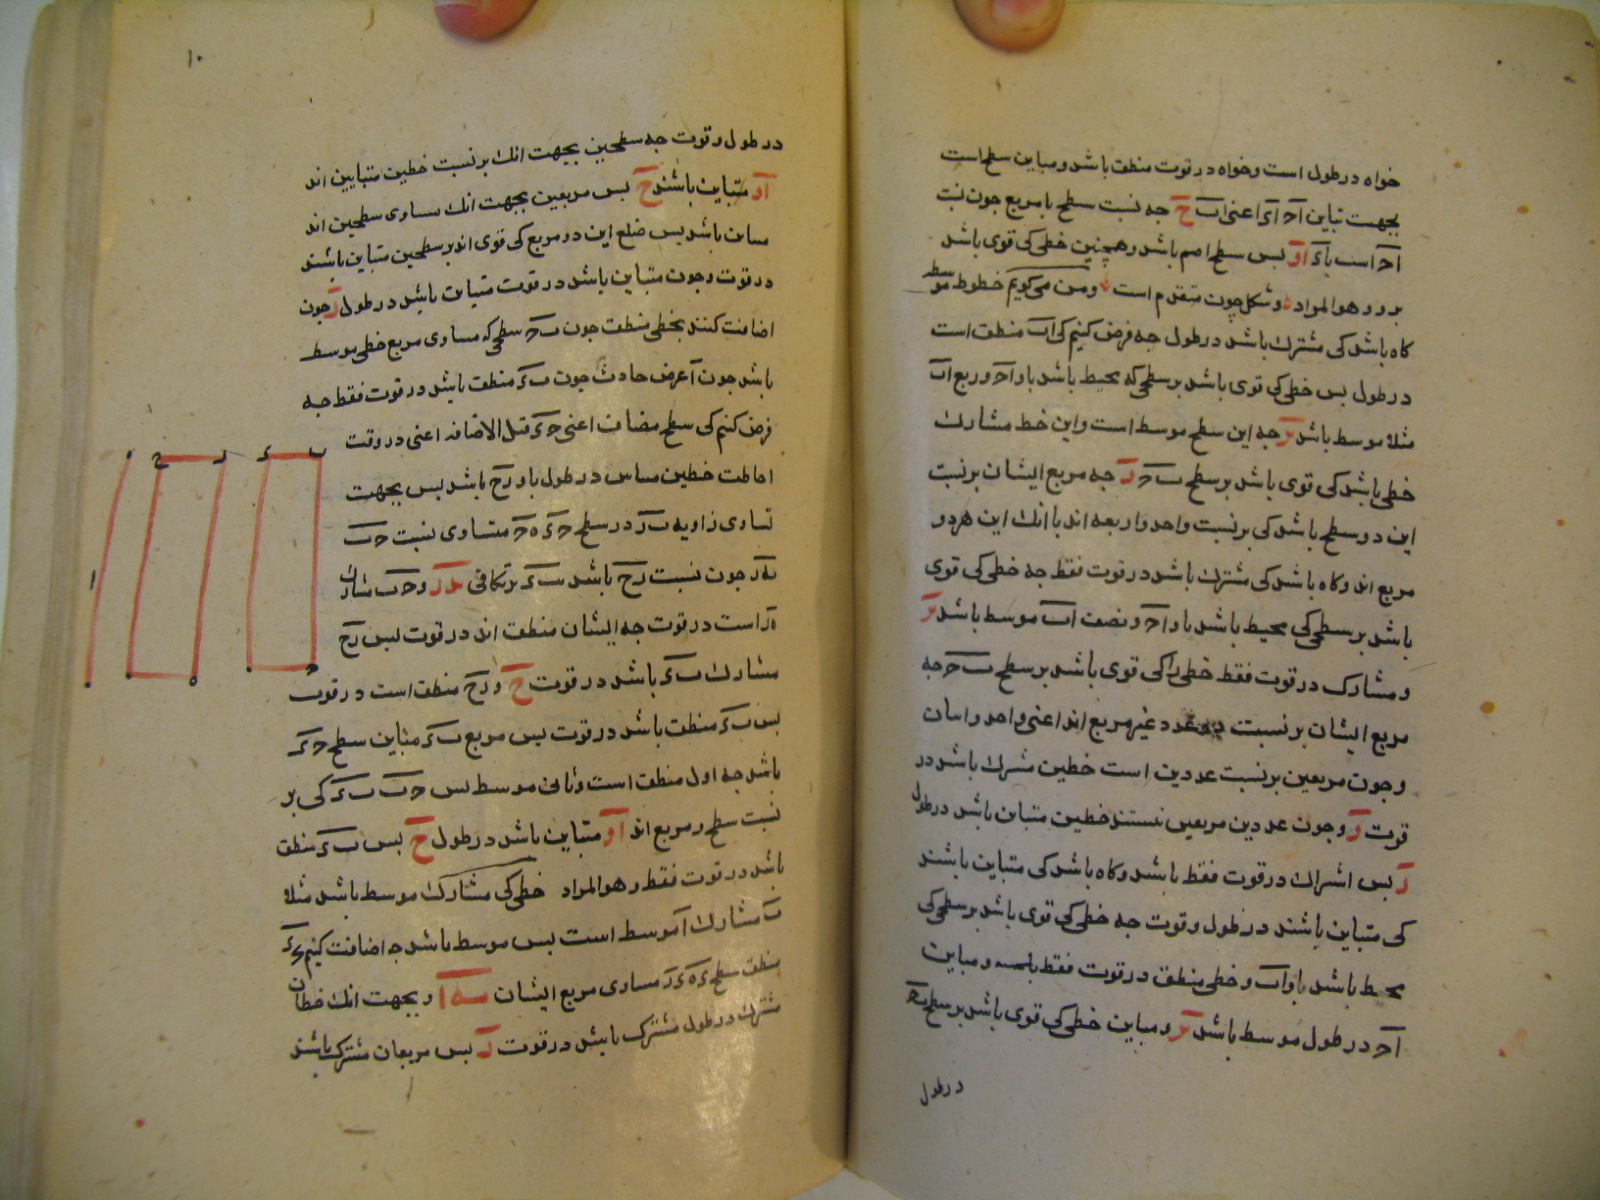 خواه در طول است وخواه در قوت منطق باشد ومباین سطح است
بجهت تباین اح ا‌د اعنی اب ح جه نسبت سطح با مربع جون نسبت
اح است با‌د او بس سطح اصم باشد وهمچنین خطی کی قوی باشد
برو وهو المراد وشکل جون متقدم است ومن می کویم خطوط موسطه
کاه باشد کی مشترك باشد در طول جه فرض کنیم کی اب منطق است
در طول بس خطی کی قوی باشد بر سطحی که محیط باشد باو اح وربع اب
مثلا موسط باشد جه این سطح موسط است واین خط مشارك
خطی باشد کی قوی باشد بر سطح ب ح جه مربع ایشان بر نسبت
این دو سطح باشد کی بر نسبت واحد واربعه اند با انك این هر دو
مربع اند وکاه باشد کی مشترك باشد در قوت فقط جه خطی کی قوی
باشد بر سطحی کی محیط باشد باو اح ونصف اب موسط باشد
ومشارك در قوت فقط خطی را کی قوی باشد بر سطح ب ح جه
مربع ایشان بر نسبت دو عدد غیر مربع اند اعنی واحد واثنان
وجون مربعین بر نسبت عددین است خطین مشترك باشد در
قوت و وجون عددین مربعین نیستند خطین متباین باشد در طول
بس اشتراك در قوت فقط باشد وکاه باشد کی متباین باشند
کی متباین باشند در طول وقوت جه خطی کی قوی باشد بر سطحی کی
محیط باشد باو اب وخطی منطق در قوت فقط ومباین
اح در طول موسط باشد ومباین خطی کی قوی باشد بر سطح ب ح
در طول
۱۰
در طول وقوت جه سطحین بجهت انك بر نسبت خطین متباینین اند
او متباین باشند ح بس مربعین بجهت انك مساوی سطحین اند
متباین باشد بس ضلع این دو مربع کی قوی اند بر سطحین متباین باشند
در قوت وجون متباین باشد در قوت متباین باشد در طول جون
اضافت کنند بخطی منطق جون ب ح سطحی که مساوی مربع خطی موسط
باشد جون ا عرض حادث جون ب د منطق باشد در قوت فقط جه
فرض کنیم کی سطح مضاف اعنی ح د قبل الاضافه اعنی در وقت
احاطت خطین در طول باو رح باشد بس بجهت
تساوی زاویه ب ر در سطح ح د ه ح متساوی نسبت ح ب
به ه ر جون نسبت رح باشد ب د بر تکافی وح ب مشارك
ه ر است در قوت جه ایشان منطق اند در قوت بس رح
مشارك ب د باشد در قوت ح ورح منطق است در قوت
بس ب د منطق باشد در قوت بس مربع ب د مباین سطح ح د
باشد جه اول منطق است وثانی موسط بس ح ب ب د کی بر
نسبت سطح ومربع اند او متباین باشد در طول ح بس ب د منطق
باشد در قوت فقط وهو المراد خطی کی مشارك موسط باشد مثلا
ب مشارك ا موسط است بس موسط باشد جه اضافت کنیم
منطق سطح ح ه ح ر مساوی مربع ایشان وبجهت انك خطان
مشترك در طول مشترك باشد در قوت بس مربعان مشترك باشند
ب د ر ح
ا
ح ه